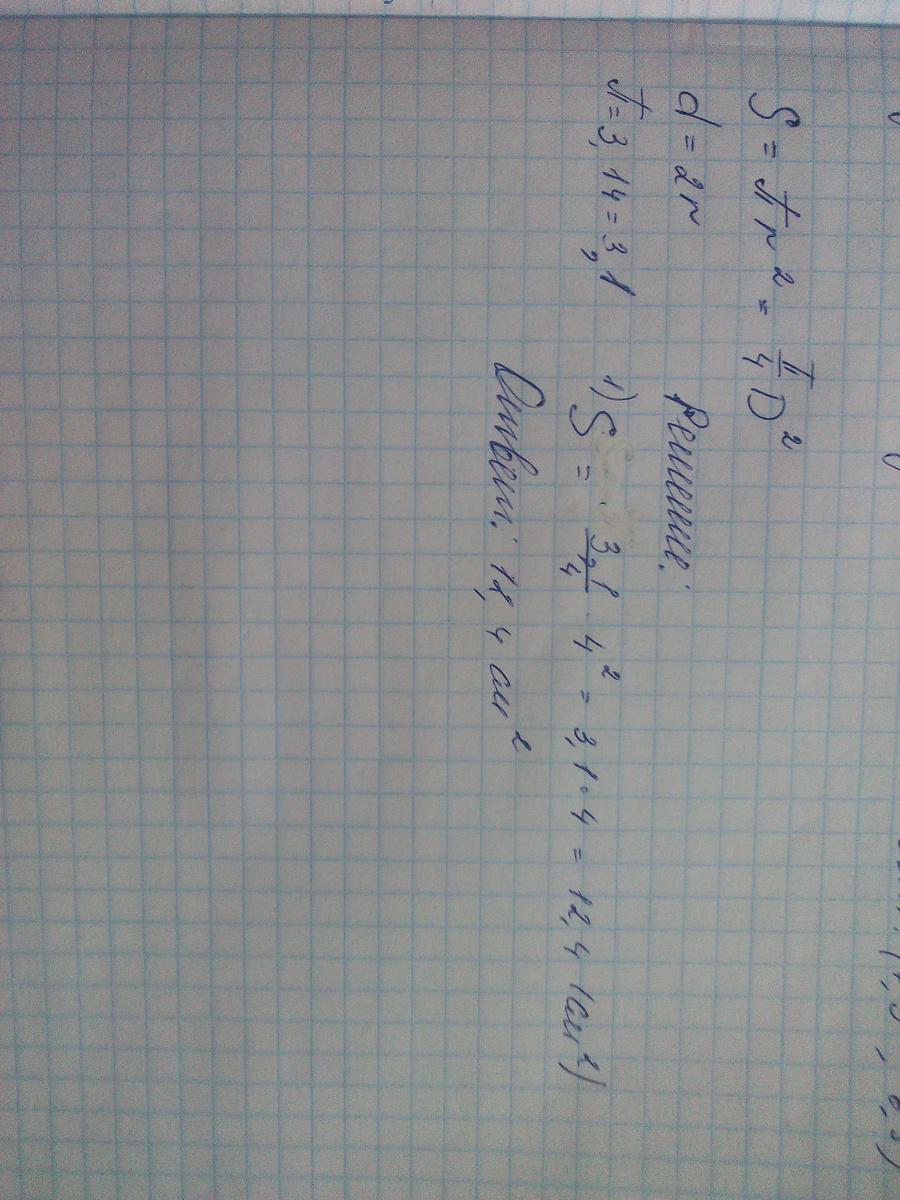 S = πr² = π/4 D²
d = 2r
π = 3,14 = 3,1
Решение:
1) S = 3,1/4 · 4² = 3,1 · 4 = 12,4 (см²)
Ответ: 12,4 см²